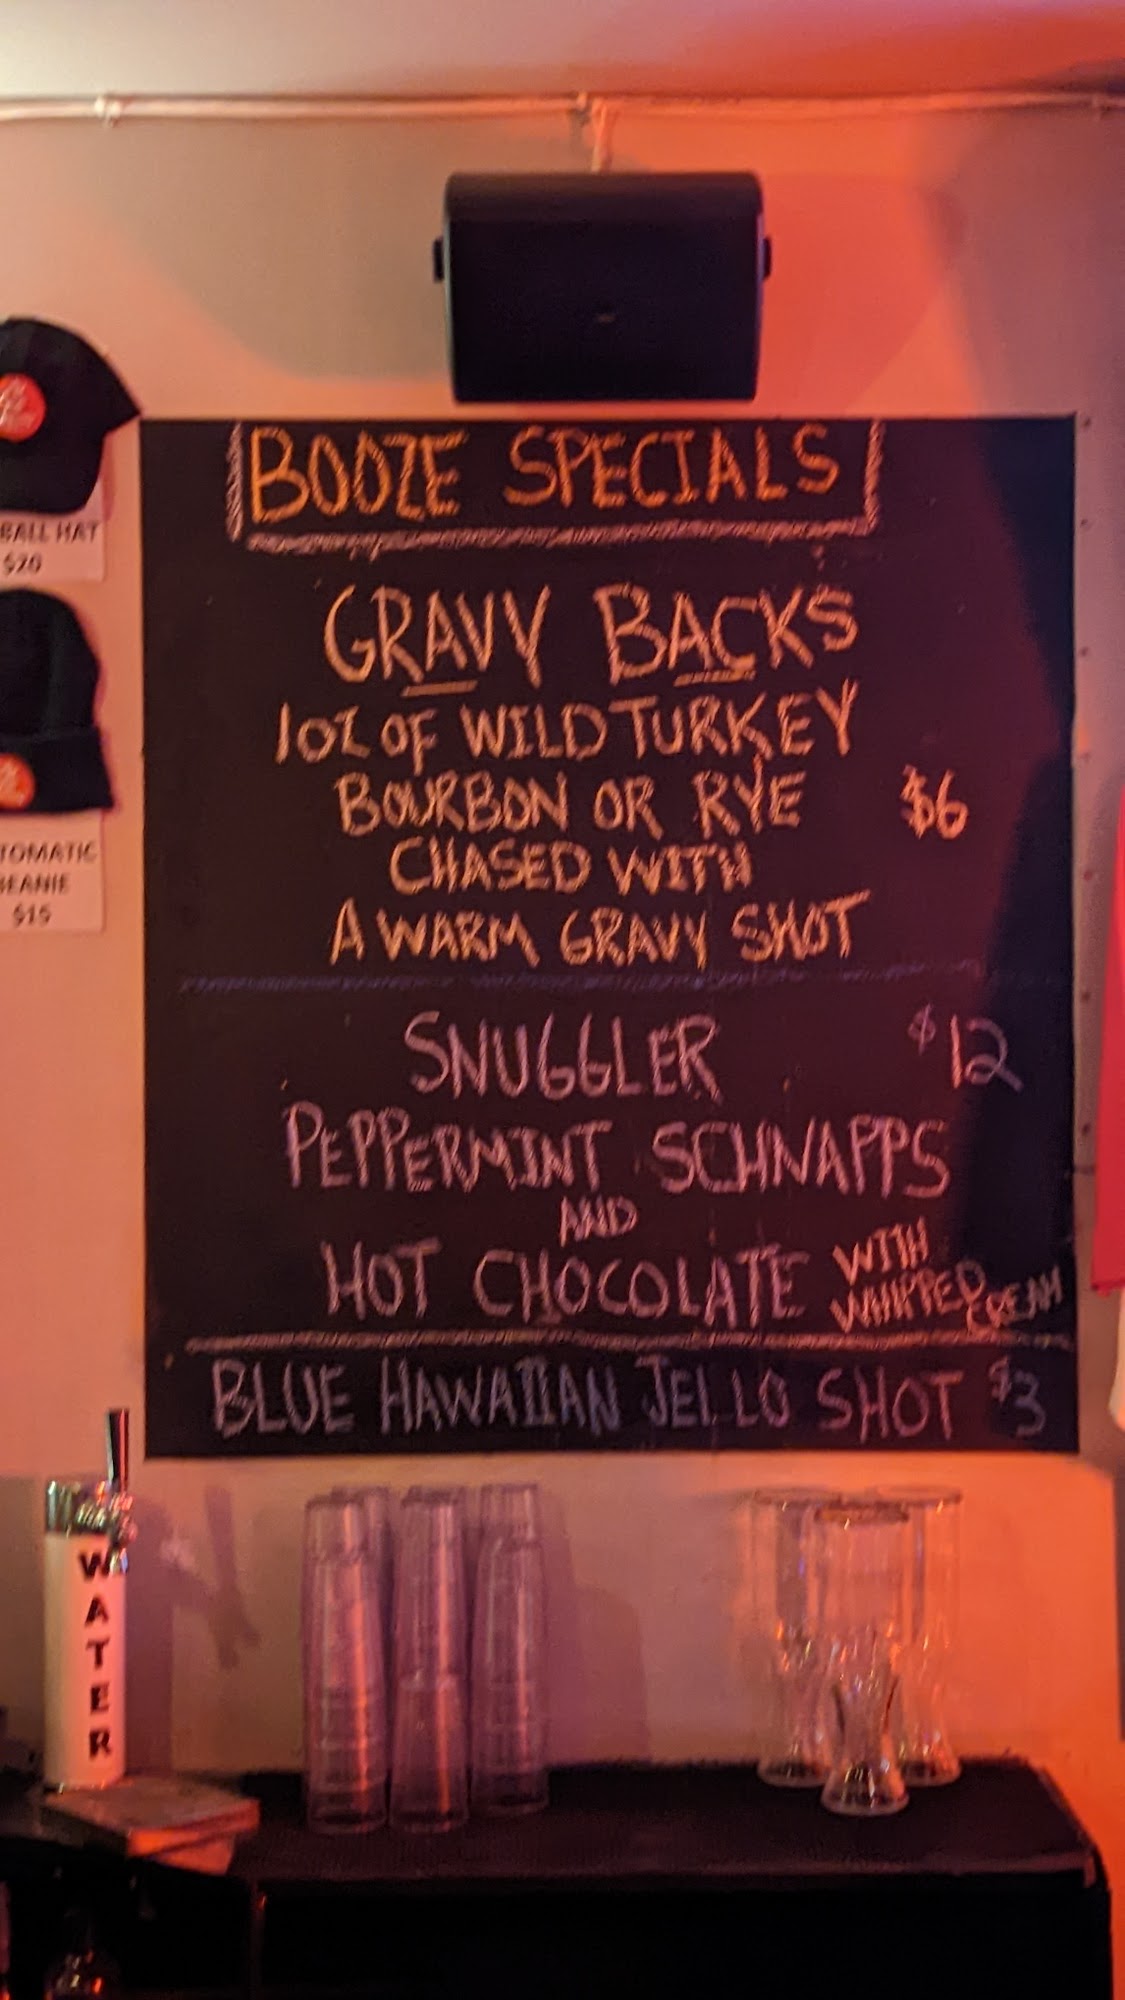 BOOZE SPECIALS
GRAVY BACKS
1OZ OF WILD TURKEY
BOURBON OR RYE $6
CHASED WITH
A WARM GRAVY SHOT
SNUGGLER $12
PEPPERMINT SCHNAPPS
AND
HOT CHOCOLATE WITH
WHIPPED
CREAM
BLUE HAWAIIAN JELLO SHOT $3
BALL HAT
$20
TOMATIC
BEANIE
$15
WATER